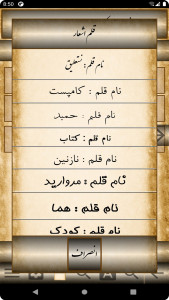 8:50
قلم اشعار
نام قلم : نستعلیق
نام قلم : کامپست
نام قلم : حمید
نام قلم : کتاب
نام قلم : نازنین
نام قلم : مروارید
نام قلم : هما
نام قلم : کودک
انصراف